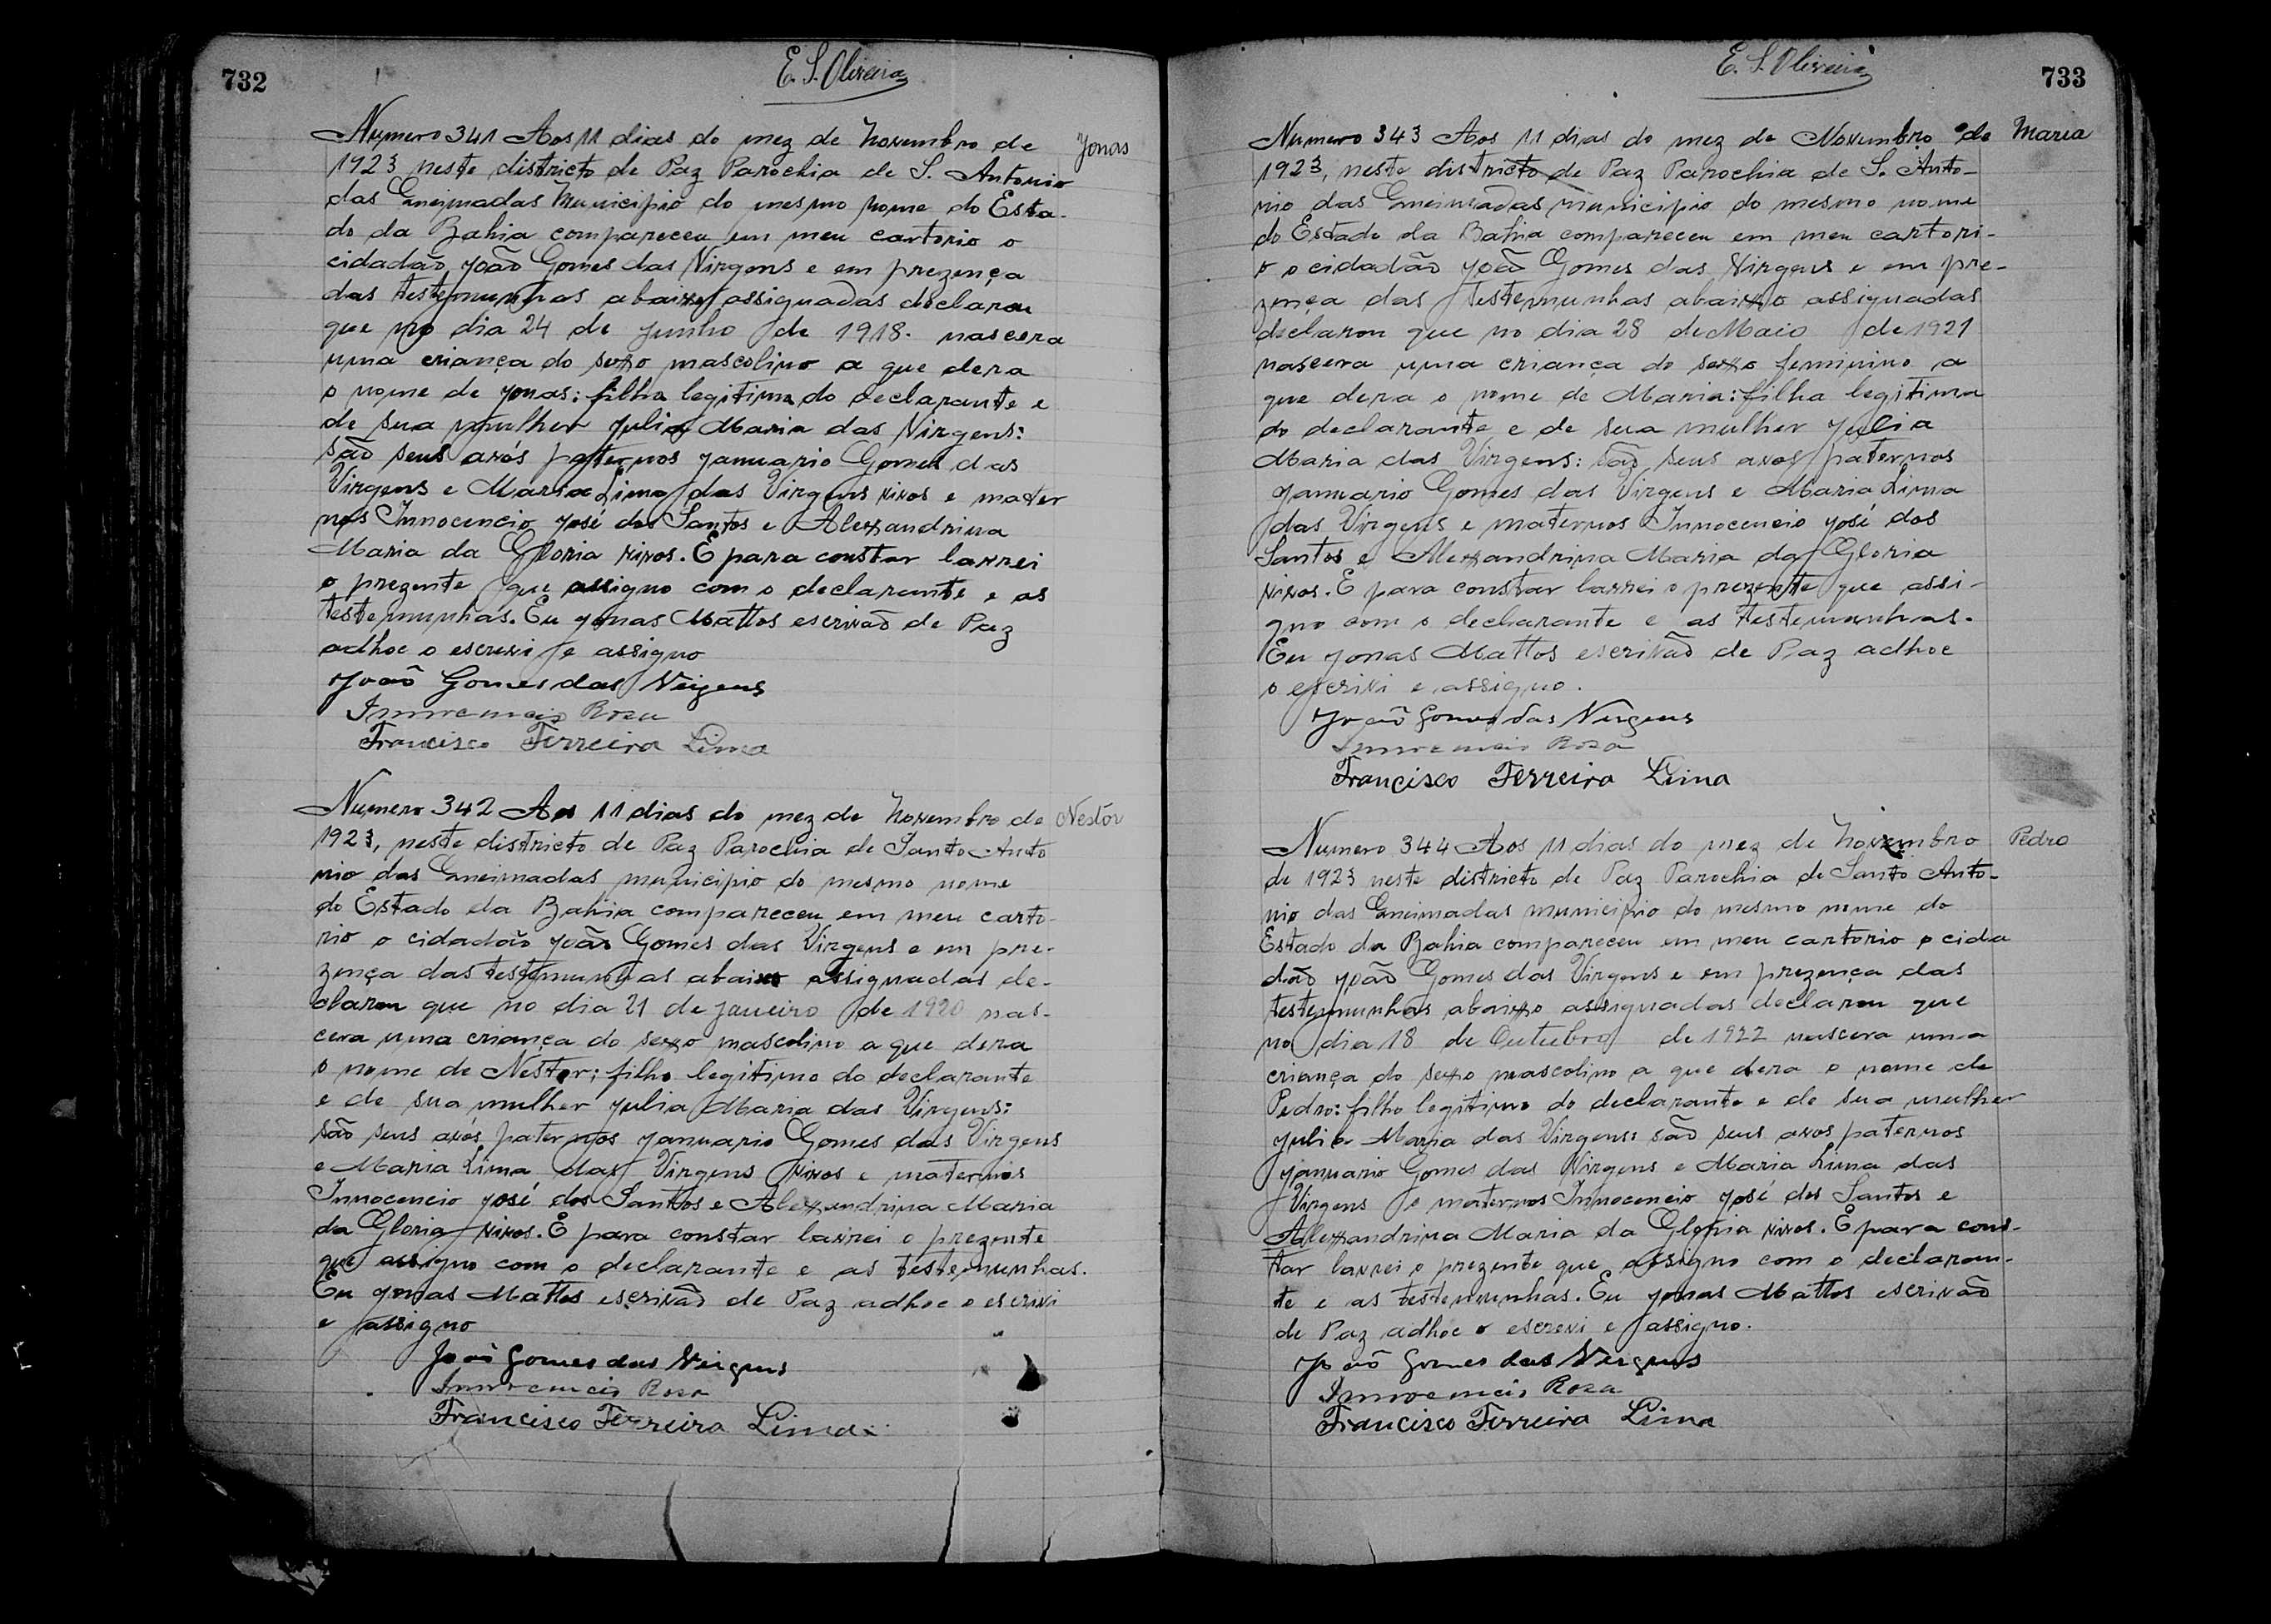 732
E. S. Oliveira
Jonas
Numero 341 Aos 11 dias do mez de Novembro de
1923 neste districto de Paz Parochia de S. Antonio
das Queimadas Municipio do mesmo nome do Esta-
do da Bahia compareceu em meu cartorio o
cidadão João Gomes das Virgens e em prezença
das testemunhas abaixo assignadas declarou
que no dia 24 de Junho de 1918. nascera
uma criança do sexo mascolino a que dera
o nome de Jonas: filha legitima do declarante e
de sua mulher Julia Maria das Virgens:
são seus avós paternos Januario Gomes das
Virgens e Maria Lima das Virgens vivos e mater
nos Innocencio José dos Santos e Alexandrina
Maria da Gloria vivos. E para constar lavrei
o prezente que assigno com o declarante e as
testemunhas. Eu Jonas Mattos escrivão de Paz
adhoc o escrevi e assigno
João Gomes das Virgens
Innocencio Rosa
Francisco Ferreira Lima
Nestor
Numero 342 Aos 11 dias do mez de Novembro de
1923, neste districto de Paz Parochia de Santo Anto
nio das Queimadas municipio do mesmo nome
do Estado da Bahia compareceu em meu carto-
rio o cidadão João Gomes das Virgens e em pre-
zença das testemunhas abaixo assignadas de-
clarou que no dia 21 de Janeiro de 1920 nas-
cera uma criança do sexo mascolino a que dera
o nome de Nestor; filho legitimo do declarante
e de sua mulher Julia Maria das Virgens:
são seus avós paternos Januario Gomes das Virgens
e Maria Lima das Virgens vivos e maternos
Innocencio José dos Santos e Alexandrina Maria
da Gloria vivos. E para constar lavrei o prezente
que assigno com o declarante e as testemunhas.
Eu Jonas Mattos escrivão de Paz adhoc o escrivi
e assigno
João Gomes das Virgens
Innocencio Rosa
Francisco Ferreira Lima
733
E. S. Oliveira
Maria
Numero 343 Aos 11 dias do mez de Novembro de
1923, neste districto de Paz Parochia de S. Anto-
nio das Queimadas municipio do mesmo nome
do Estado da Bahia compareceu em meu cartori-
o o cidadão João Gomes das Virgens e em pre-
zença das testemunhas abaixo assignadas
declarou que no dia 28 de Maio de 1921
nascera uma criança do sexo feminino a
que dera o nome de Maria: filha legitima
do declarante e de sua mulher Julia
Maria das Virgens: são seus avos paternos
Januario Gomes das Virgens e Maria Lima
das Virgens e maternos Innocencio José dos
Santos e Alexandrina Maria da Gloria
vivos. E para constar lavrei o prezente que assi-
gno com o declarante e as testemunhas.
Eu Jonas Mattos escrivão de Paz adhoc
o escrivi e assigno.
João Gomes das Virgens
Innocencio Rosa
Francisco Ferreira Lima
Pedro
Numero 344 Aos 11 dias do mez de Novembro
de 1923 neste districto de Paz Parochia de Santo Anto-
nio das Queimadas municipio do mesmo nome do
Estado da Bahia compareceu em meu cartorio o cida
dão João Gomes das Virgens e em prezença das
testemunhas abaixo assignadas declarou que
no dia 18 de Outubro de 1922 nascera uma
criança do sexo mascolino a que dera o nome de
Pedro: filho legitimo do declarante e de sua mulher
Julia Maria das Virgens: são seus avos paternos
Januario Gomes das Virgens e Maria Lima das
Virgens e maternos Innocencio José dos Santos e
Alexandrina Maria da Gloria vivos. E para cons-
tar lavrei o prezente que assigno com o declaran-
te e as testemunhas. Eu Jonas Mattos escrivão
de Paz adhoc o escrevi e assigno.
João Gomes das Virgens
Innocencio Rosa
Francisco Ferreira Lima